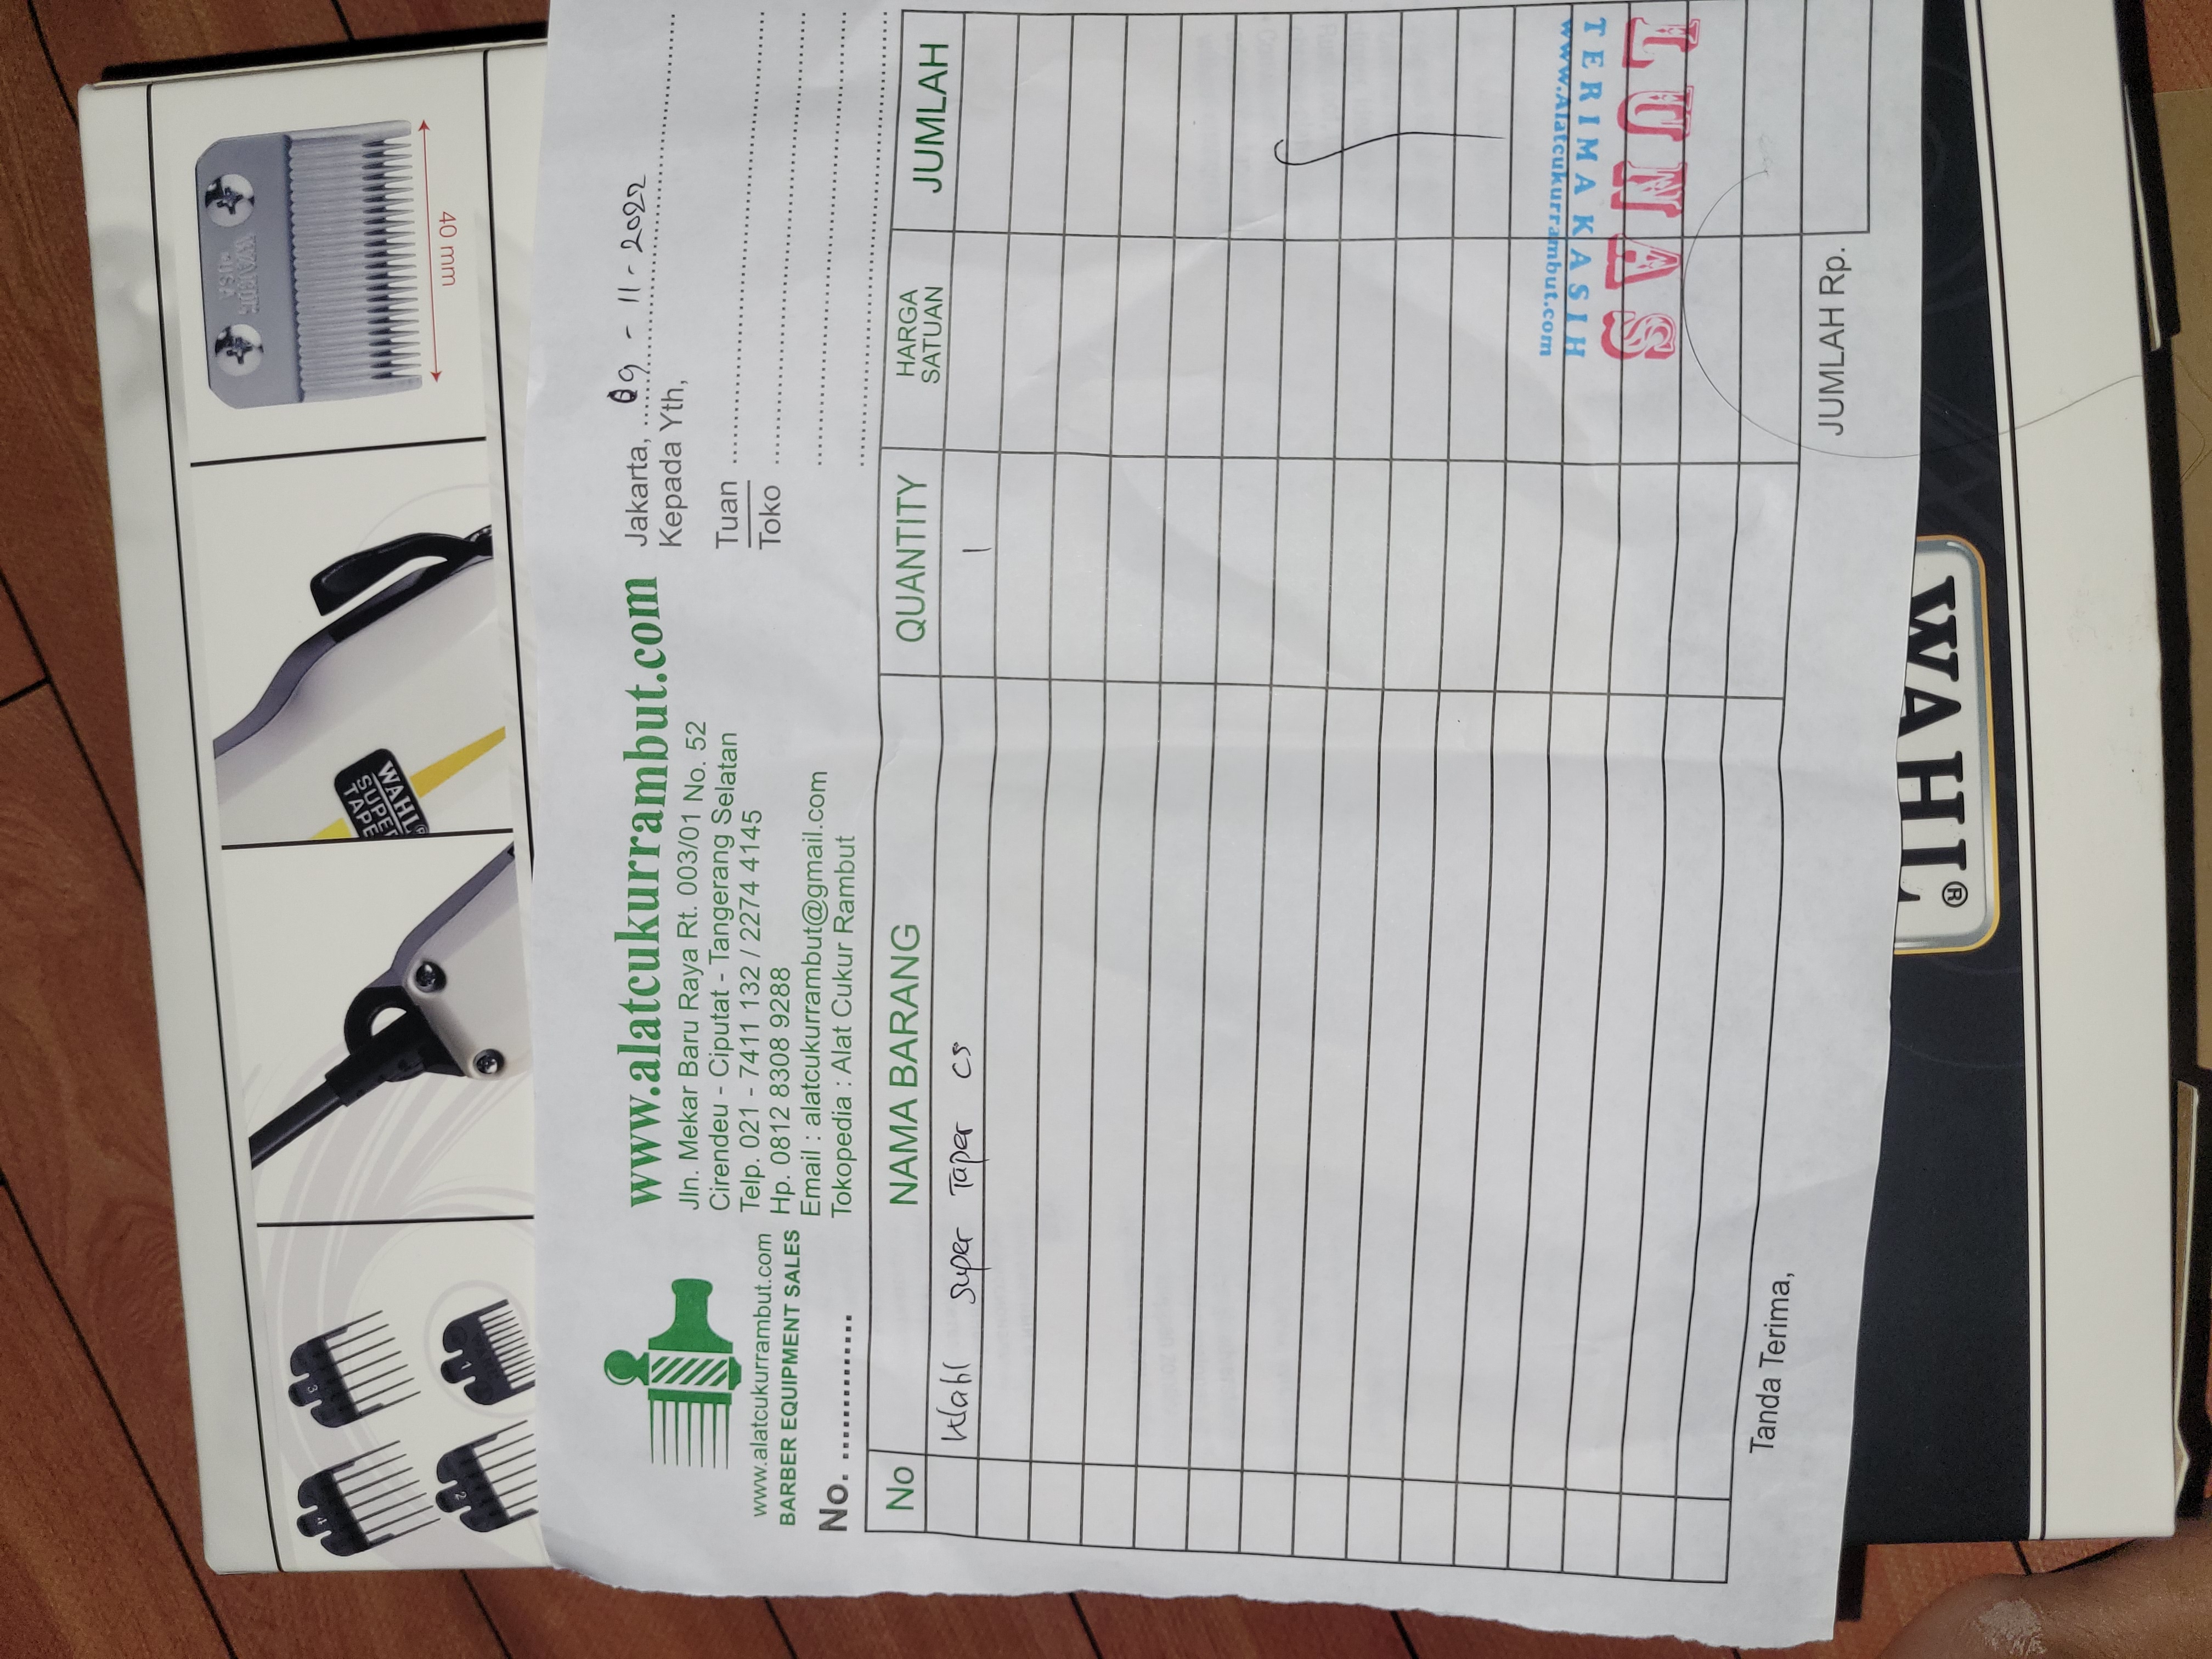 4
3
2
1
WAHL®
SUPER
TAPE
WAHL
USA
40 mm
www.alatcukurrambut.com
BARBER EQUIPMENT SALES
No. ..............
www.alatcukurrambut.com
Jln. Mekar Baru Raya Rt. 003/01 No. 52
Cirendeu - Ciputat - Tangerang Selatan
Telp. 021 - 7411 132 / 2274 4145
Hp. 0812 8308 9288
Email : alatcukurrambut@gmail.com
Tokopedia : Alat Cukur Rambut
Jakarta, 09 - 11 - 2022
Kepada Yth,
Tuan
Toko
No NAMA BARANG QUANTITY HARGA SATUAN JUMLAH
Wahl super Taper cs 1
LUNAS
TERIMA KASIH
www.Alatcukurrambut.com
Tanda Terima,
JUMLAH Rp.
WAHL®